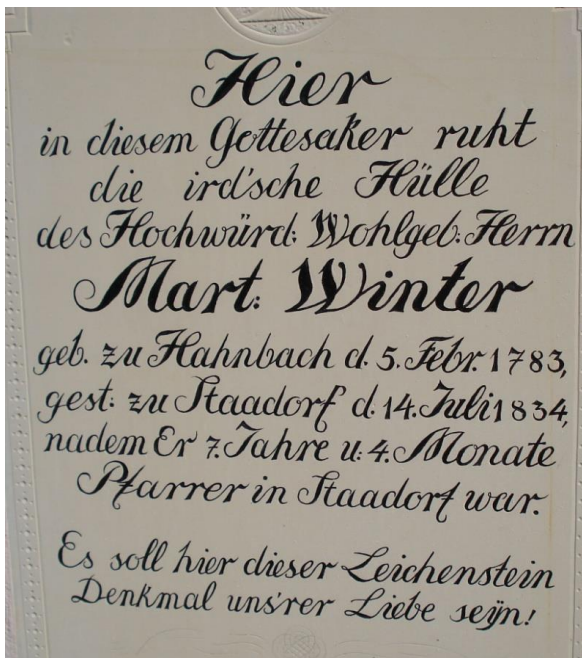 Hier
in diesem Gottesaker ruht
die ird'sche Hülle
des Hochwürd: Wohlgeb: Herrn
Mart: Winter
geb. zu Hahnbach d. 5. Febr. 1783,
gest: zu Staadorf d. 14. Juli 1834,
nadem Er 7. Jahre u: 4. Monate
Pfarrer in Staadorf war.
Es soll hier dieser Leichenstein
Denkmal uns'rer Liebe seÿn!